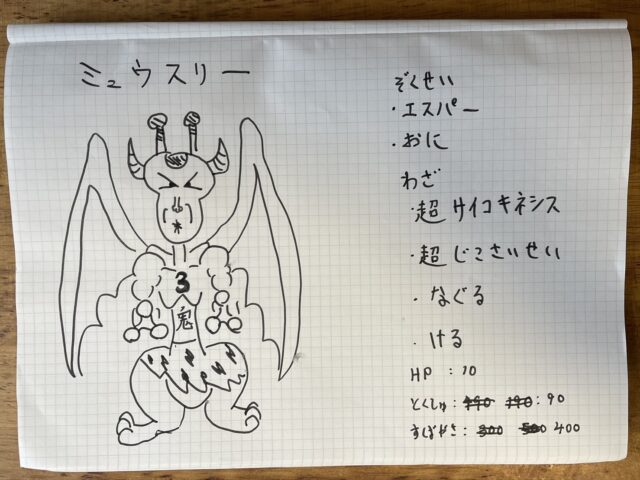 ミュウスリー
3
鬼
ぞくせい
・エスパー
・おに
わざ
・超サイコキネシス
・超じこさいせい
・なぐる
・ける
HP : 10
とくしゅ : 190 190 : 90
すばやさ : 300 500 400